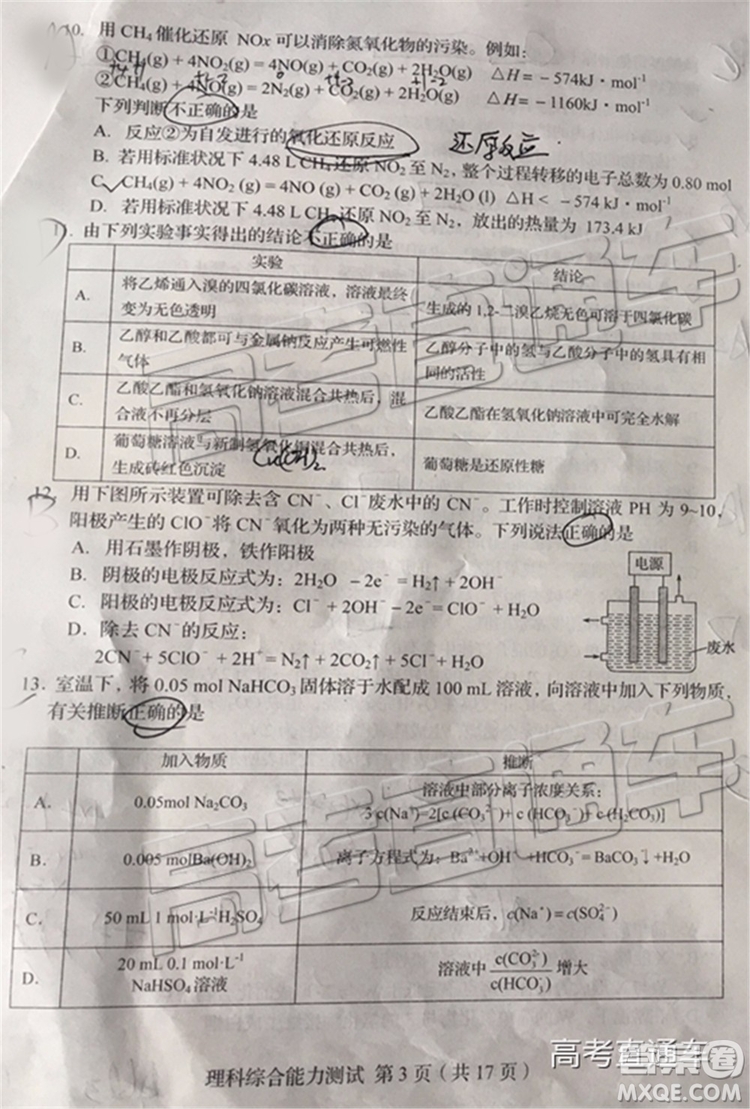 10. 用 CH₄ 催化还原 NOx 可以消除氮氧化物的污染。例如:
①CH₄(g) + 4NO₂(g) = 4NO(g) + CO₂(g) + 2H₂O(g) △H = − 574kJ · mol⁻¹
②CH₄(g) + 4NO(g) = 2N₂(g) + CO₂(g) + 2H₂O(g) △H = − 1160kJ · mol⁻¹
下列判断不正确的是
A. 反应②为自发进行的氧化还原反应 还原反应
B. 若用标准状况下 4.48 L CH₄ 还原 NO₂ 至 N₂, 整个过程转移的电子总数为 0.80 mol
C. CH₄(g) + 4NO₂ (g) = 4NO (g) + CO₂ (g) + 2H₂O (l) △H < − 574 kJ · mol⁻¹
D. 若用标准状况下 4.48 L CH₄ 还原 NO₂ 至 N₂, 放出的热量为 173.4 kJ
11. 由下列实验事实得出的结论不正确的是
实验 结论
A. 将乙烯通入溴的四氯化碳溶液, 溶液最终变为无色透明 生成的 1,2-二溴乙烷无色可溶于四氯化碳
B. 乙醇和乙酸都可与金属钠反应产生可燃性气体 乙醇分子中的氢与乙酸分子中的氢具有相同的活性
C. 乙酸乙酯和氢氧化钠溶液混合共热后, 混合液不再分层 乙酸乙酯在氢氧化钠溶液中可完全水解
D. 葡萄糖溶液与新制氢氧化铜混合共热后, 生成砖红色沉淀 Cu(OH)₂ 葡萄糖是还原性糖
12. 用下图所示装置可除去含 CN⁻、Cl⁻废水中的 CN⁻。工作时控制溶液 PH 为 9~10,
阳极产生的 ClO⁻将 CN⁻氧化为两种无污染的气体。下列说法正确的是
A. 用石墨作阴极, 铁作阳极
B. 阴极的电极反应式为: 2H₂O − 2e⁻ = H₂↑ + 2OH⁻
C. 阳极的电极反应式为: Cl⁻ + 2OH⁻ − 2e⁻ = ClO⁻ + H₂O
D. 除去 CN⁻的反应:
2CN⁻+ 5ClO⁻ + 2H⁺= N₂↑ + 2CO₂↑ + 5Cl⁻+ H₂O
电源
废水
13. 室温下, 将 0.05 mol NaHCO₃ 固体溶于水配成 100 mL 溶液, 向溶液中加入下列物质,
有关推断正确的是
加入物质 推断
A. 0.05mol Na₂CO₃ 溶液中部分离子浓度关系: 3 c(Na⁺)=2[c (CO₃²⁻)+ c (HCO₃⁻)+ c (H₂CO₃)]
B. 0.005 molBa(OH)₂ 离子方程式为: Ba²⁺+OH⁻ +HCO₃⁻= BaCO₃↓+H₂O
C. 50 mL 1 mol·L⁻¹H₂SO₄ 反应结束后, c(Na⁺) = c(SO₄²⁻)
D. 20 mL 0.1 mol·L⁻¹ NaHSO₄ 溶液 溶液中 c(CO₃²⁻)/c(HCO₃⁻) 增大
理科综合能力测试 第 3 页 (共 17 页)
高考直通车
答案圈
MXQE.COM